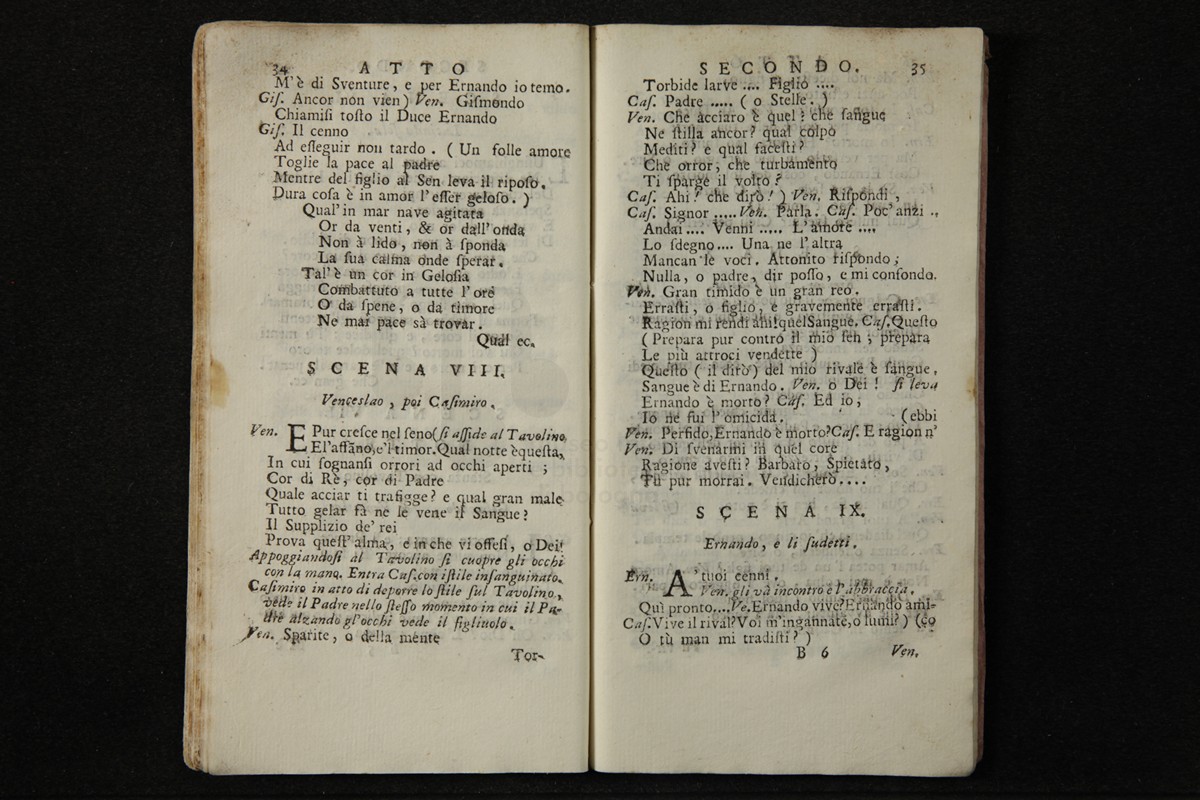 34 ATTO
M'è di Sventure, e per Ernando io temo.
Giſ. Ancor non vien) Ven. Giſmondo
Chiamiſi toſto il Duce Ernando
Giſ. Il cenno
Ad eſſeguir non tardo. (Un folle amore
Toglie la pace al padre
Mentre del figlio al Sen leva il ripoſo.
Dura coſa è in amor l'eſſer geloſo.)
Qual'in mar nave agitata
Or da venti, & or dall'onda
Non à lido, non à ſponda
La ſua calma onde ſperar.
Tal'è un cor in Geloſia
Combattuto a tutte l'ore
O da ſpene, o da timore
Ne mai pace sà trovar.
Qual ec.
SCENA VIII.
Venceslao, poi Caſimiro.
Ven. EPur creſce nel ſeno (ſi aſſide al Tavolino,
E l'affãno, e'l timor. Qual notte è queſta,
In cui ſognanſi orrori ad occhi aperti;
Cor di Rè, cor di Padre
Quale acciar ti trafigge? e qual gran male
Tutto gelar fà ne le vene il Sangue?
Il Supplizio de' rei
Prova queſt'alma, e in che vi offeſi, o Dei!
Appoggiandoſi al Tavolino ſi cuopre gli occhi
con la mano. Entra Caſ. con iſtile inſanguinato.
Caſimiro in atto di deporre lo ſtile ſul Tavolino,
vede il Padre nello ſteſſo momento in cui il Pa-
dre alzando gl'occhi vede il figliuolo.
Ven. Sparite, o della mente
Tor-
SECONDO. 35
Torbide larve .... Figlio ....
Caſ. Padre ..... (o Stelle.)
Ven. Che acciaro è quel? che ſangue
Ne ſtilla ancor? qual colpo
Mediti? e qual faceſti?
Che orror, che turbamento
Ti ſparge il volto?
Caſ. Ahi! che dirò!) Ven. Riſpondi,
Caſ. Signor ..... Ven. Parla. Caſ. Poc'anzi ..
Andai .... Venni ..... L'amore ....
Lo ſdegno .... Una ne l'altra
Mancan'le voci. Attonito riſpondo;
Nulla, o padre, dir poſſo, e mi confondo.
Ven. Gran timido è un gran reo.
Erraſti, o figlio, e gravemente erraſti.
Ragion mi rendi ahi! quel Sangue. Caſ. Queſto
(Prepara pur contro il mio ſen, prepara
Le più attroci vendette)
Queſto (il dirò) del mio rivale è ſangue,
Sangue è di Ernando. Ven. o Dei! ſi leva
Ernando è morto? Caſ. Ed io,
Io ne fui l'omicida. (ebbi
Ven. Perfido, Ernando è morto? Caſ. E ragion n'
Ven. Di ſvenarmi in quel core
Ragione aveſti? Barbaro, Spietato,
Tu pur morrai. Vendicherò....
SCENA IX.
Ernando, e li ſudetti.
Ern. A' tuoi cenni.
Ven. gli và incontro e l'abbraccia.
Quì pronto.... Ve. Ernando vive? Ernando ami-
Caſ. Vive il rival? Voi m'ingannate, o lumi?) (co
O tù man mi tradiſti?)
B 6 Ven.